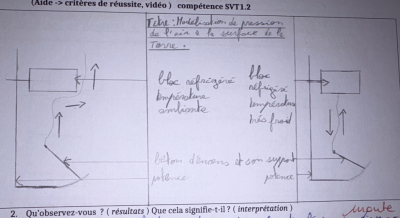 (Aide -> critères de réussite, vidéo) compétence SVT1.2
Titre : Modélisation de pression
de l'air à la surface de la
Terre.
bloc réfrigéré
température
ambiante
bloc
réfrigéré
température
très froid
bâton d'encens et son support
potence
potence
2. Qu'observez-vous ? ( résultats ) Que cela signifie-t-il ? ( interprétation )